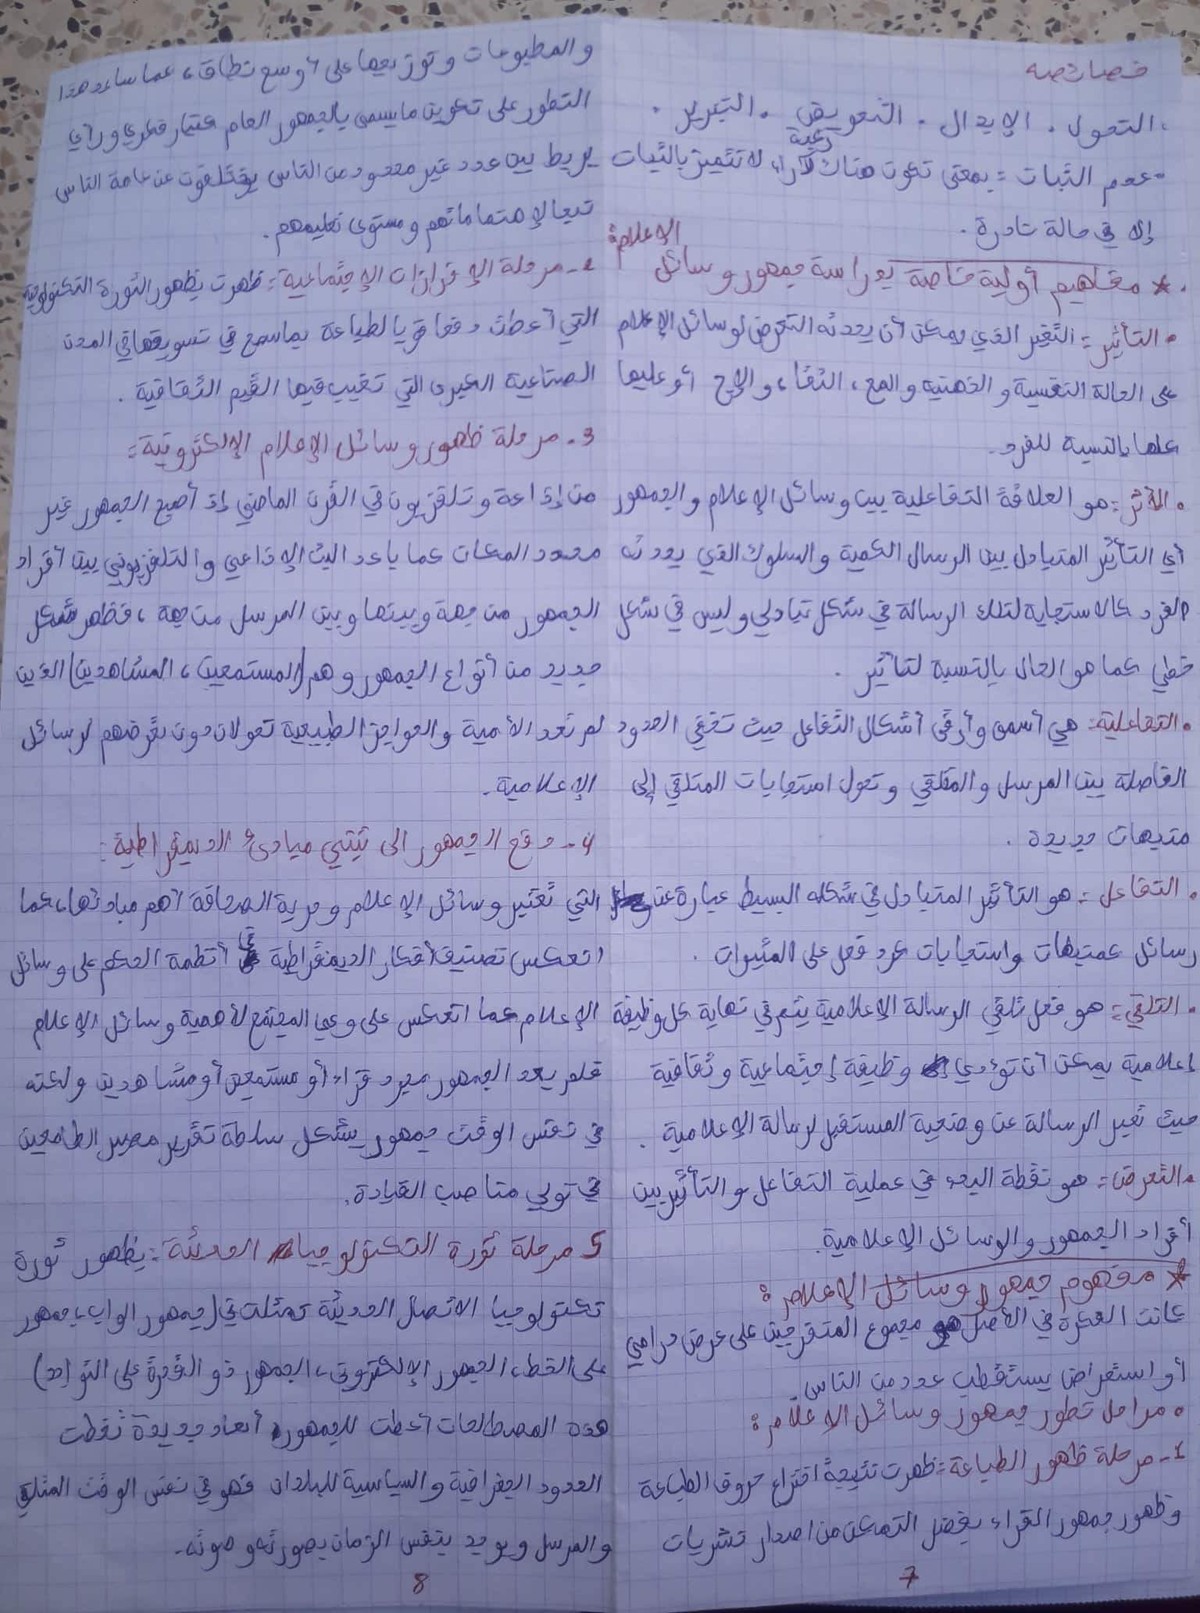 خصائصه
. التحول . الإبدال . التعويض . التبرير .
- عدم الثبات = بمعنى تكون هناك آراء لا تتميز بالثبات
إلا في حالة نادرة .
* مفاهيم أولية خاصة بدراسة جمهور وسائل الإعلام :
. التأثير = التغير الذي يمكن أن يحدثه التعرض لوسائل الإعلام
على الحالة النفسية والذهنية
عليها بالنسبة للفرد .
. الأثر = هو العلاقة التفاعلية بين وسائل الإعلام والجمهور
أي التأثير المتبادل بين الرسال الكمية والسلوك الذي يحدثه
الفرد كالاستجابة لتلك الرسالة في شكل تبادلي وليس في شكل
خطي كما هو الحال بالنسبة لتأثير .
. التفاعلية = هي أسمى وأرقى أشكال التفاعل حيث تختفي الحدود
الفاصلة بين المرسل والمتلقي وتحول استجابات المتلقي إلى
منبهات جديدة .
. التفاعل = هو التأثير المتبادل في شكله البسيط عبارة عن
رسائل كمنبهات واستجابات كرد فعل على المثيرات .
. التلقي = هو فعل تلقي الرسالة الإعلامية يتم في نهاية كل وظيفة
إعلامية يمكن أن تؤدي وظيفة إجتماعية وثقافية
حيث تعبر الرسالة عن وضعية المستقبل لرسالة الإعلامية .
. التعرض = هو نقطة البدء في عملية التفاعل والتأثير بين
أفراد الجمهور والوسائل الإعلامية .
* مفهوم جمهور وسائل الإعلام :
كانت الفكرة في الأصل هو مجموع المتفرجين على عرض درامي
أو استعراض يستقطب عدد من الناس .
. مراحل تطور جمهور وسائل الاعلام :
1 - مرحلة ظهور الطباعة = ظهرت نتيجة اختراع حروف الطباعة
وظهور جمهور القراء بفضل التمكن من اصدار نشريات
7
والمطبوعات وتوزيعها على أوسع نطاق ، كما ساعد هذا
التطور على تكوين ما يسمى بالجمهور العام كتيار فكري ورأي
يربط بين عدد غير محدود من الناس يختلفون عن عامة الناس
تبعا لإهتماماتهم ومستوى تعليمهم .
2 - مرحلة الإفرازات الإجتماعية = ظهرت بظهور الثورة التكنولوجية
التي أعطت دفعا قويا للطباعة بما سمح في تسويقها في المدن
الصناعية الكبرى التي تغيب فيها القيم الثقافية .
3 - مرحلة ظهور وسائل الإعلام الإلكترونية =
من إذاعة وتلفزيون في القرن الماضي إذ أصبح الجمهور غير
محدود المكان كما باعد البث الإذاعي والتلفزيوني بين أفراد
الجمهور من جهة وبينها وبين المرسل من جهة ، فظهر شكل
جديد من أنواع الجمهور وهم (المستمعين ، المشاهدين) الذين
لم تعد الأمية والحواجز الطبيعية تحولان دون تعرضهم لرسائل
الإعلامية .
4 - دفع الجمهور الى تبني مبادئ الديمقراطية :
التي تعتبر وسائل الإعلام وحرية الصحافة أهم مبادئها ، كما
انعكس تصنيف أفكار الديمقراطية في أنظمة الحكم على وسائل
الإعلام كما انعكس على وعي المجتمع لأهمية وسائل الإعلام
فلم يعد الجمهور مجرد قراء أو مستمعين أو مشاهدين ولكنه
في نفس الوقت جمهور يشكل سلطة تقرير مصير الطامعين
في تولي مناصب القيادة .
5 مرحلة ثورة التكنولوجيا الحديثة = بظهور ثورة
تكنولوجيا الاتصال الحديثة تمثلت في (جمهور الواب ، جمهور
على الخط ، الجمهور الإلكتروني ، الجمهور ذو القدرة على التواجد)
هذه المصطلحات أعطت للجمهور أبعاد جديدة تخطت
الحدود الجغرافية والسياسية للبلدان فهو في نفس الوقت المتلقي
والمرسل ويوجد بنفس الزمان بصورته وصوته .
8